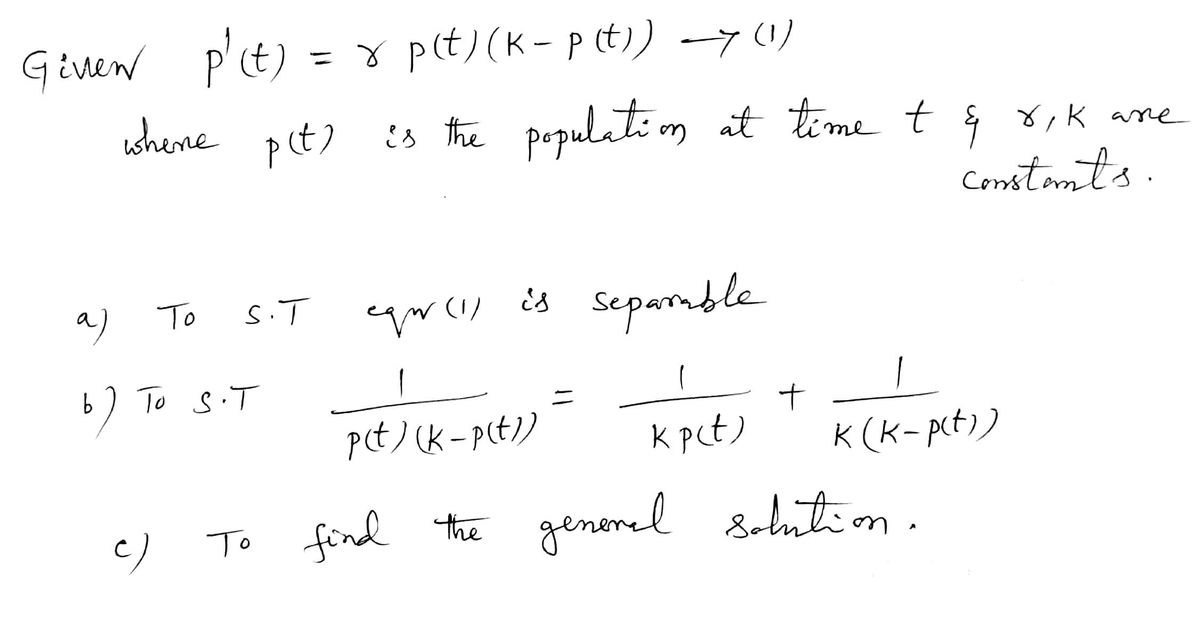 Given p'(t) = γ p(t) (K - p(t)) → (1)
where p(t) is the population at time t & γ, K are
constants.
a) To S.T eqn (1) is separable
b) To S.T 1/(p(t) (K - p(t))) = 1/(K p(t)) + 1/(K (K - p(t)))
c) To find the general solution.